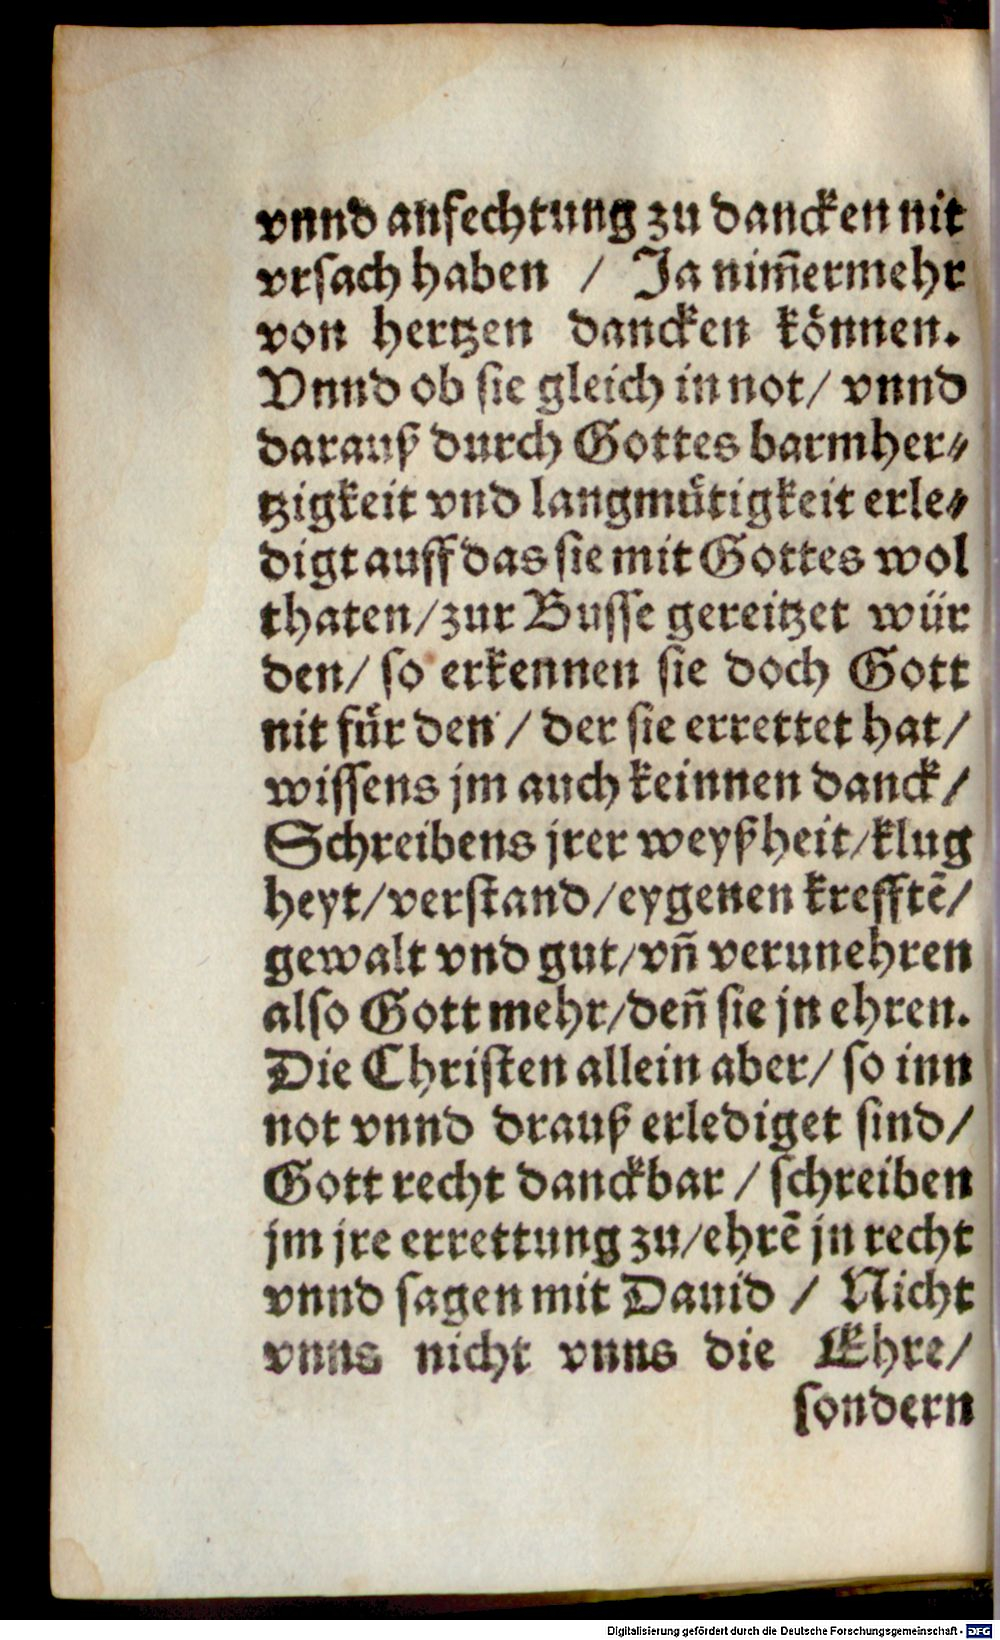 vnnd anfechtung zu dancken nit
vrsach haben / Ja nim̃ermehr
von hertzen dancken koͤnnen.
Vnnd ob sie gleich in not/ vnnd
darauß durch Gottes barmher⸗
tzigkeit vnd langmuͤtigkeit erle⸗
digt auff das sie mit Gottes wol
thaten/zur Busse gereitzet wür
den/ so erkennen sie doch Gott
nit fuͤr den / der sie errettet hat/
wissens jm auch keinnen danck/
Schreibens jrer weyßheit/klug
heyt/verstand/eygenen krefftẽ/
gewalt vnd gut/vñ verunehren
also Gott mehr/deñ sie jn ehren.
Die Christen allein aber/ so inn
not vnnd drauß erlediget sind/
Gott recht danckbar / schreiben
jm jre errettung zu/ehrẽ jn recht
vnnd sagen mit Dauid / Nicht
vnns nicht vnns die Ehre/
sondern
Digitalisierung gefördert durch die Deutsche Forschungsgemeinschaft - DFG